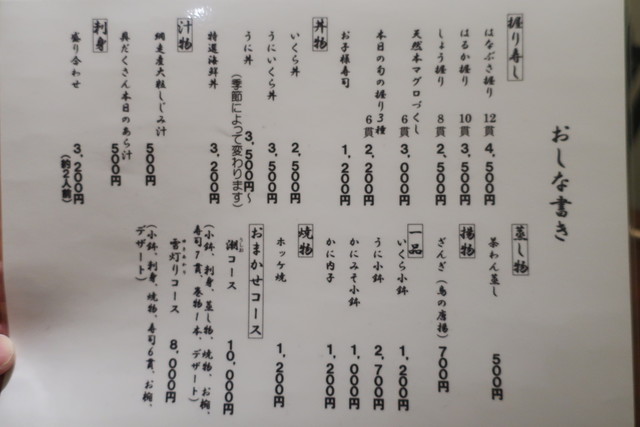 おしな書き
握り寿し
はなぶさ握り 12貫 4,500円
はるか握り 10貫 3,500円
しょう握り 8貫 2,500円
天然本マグロづくし 6貫 3,000円
本日の旬の握り3種 6貫 2,200円
お子様寿司 1,200円
丼物
いくら丼 2,500円
うにいくら丼 3,500円
うに丼 3,500円〜
(季節によって変わります)
特選海鮮丼 3,200円
汁物
網走産大粒しじみ汁 500円
具だくさん本日のあら汁 500円
刺身
盛り合わせ 3,200円
(約2人前)
蒸し物
茶わん蒸し 500円
揚物
ざんぎ(鳥の唐揚) 700円
一品
いくら小鉢 1,200円
うに小鉢 2,700円
かにみそ小鉢 1,000円
かに内子 1,200円
焼物
ホッケ焼 1,200円
おまかせコース
潮コース 10,000円
(小鉢、刺身、蒸し物、焼物、お椀、
寿司7貫、巻物1本、デザート)
雪灯りコース 8,000円
(小鉢、刺身、焼物、寿司6貫、お椀、
デザート)